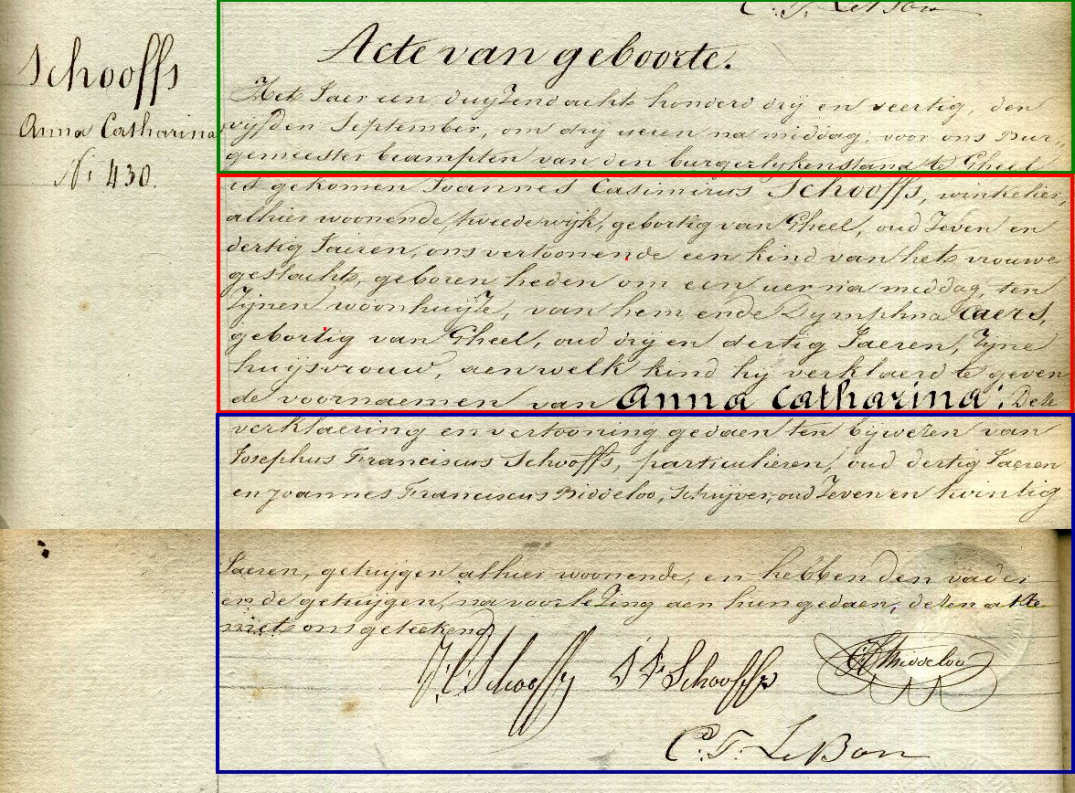 C. F. Le Bon
Schooffs
Anna Catharina
N: 430.
Acte van geboorte.
Het Jaer een duyzend acht honderd dry en veertig, den
vyfden September, om dry ueren na middag, voor ons Bur-
gemeester beampten van den burgerlykenstand te Gheel
is gekomen Joannes Casimirus Schooffs, winkelier,
alhier woonende, tweede wyk, gebortig van Gheel, oud Zeven en
dertig Jaeren, ons vertoonende een kind van het vrouwe
geslacht, geboren heden om een uer na middag, ten
Zynen woonhuyze, van hem ende Dymphna Caers,
gebortig van Gheel, oud dry en dertig Jaeren, Zyne
huysvrouw, aen welk kind hy verklaerd te geven
de voornaemen van Anna Catharina. Deze
verklaering en vertooning gedaen ten bywezen van
Josephus Franciscus Schooffs, particulieren, oud dertig Jaeren
en Joannes Franciscus Biddeloo, Schryver, oud Zeven en twintig
Jaeren, getuygen alhier woonende, en hebben den vader
en de getuygen, na voorleZing aen hun gedaen, dezen akte
met ons geteekend
J. C. Schooffs J F Schooffs Biddeloo
C. F. Le Bon